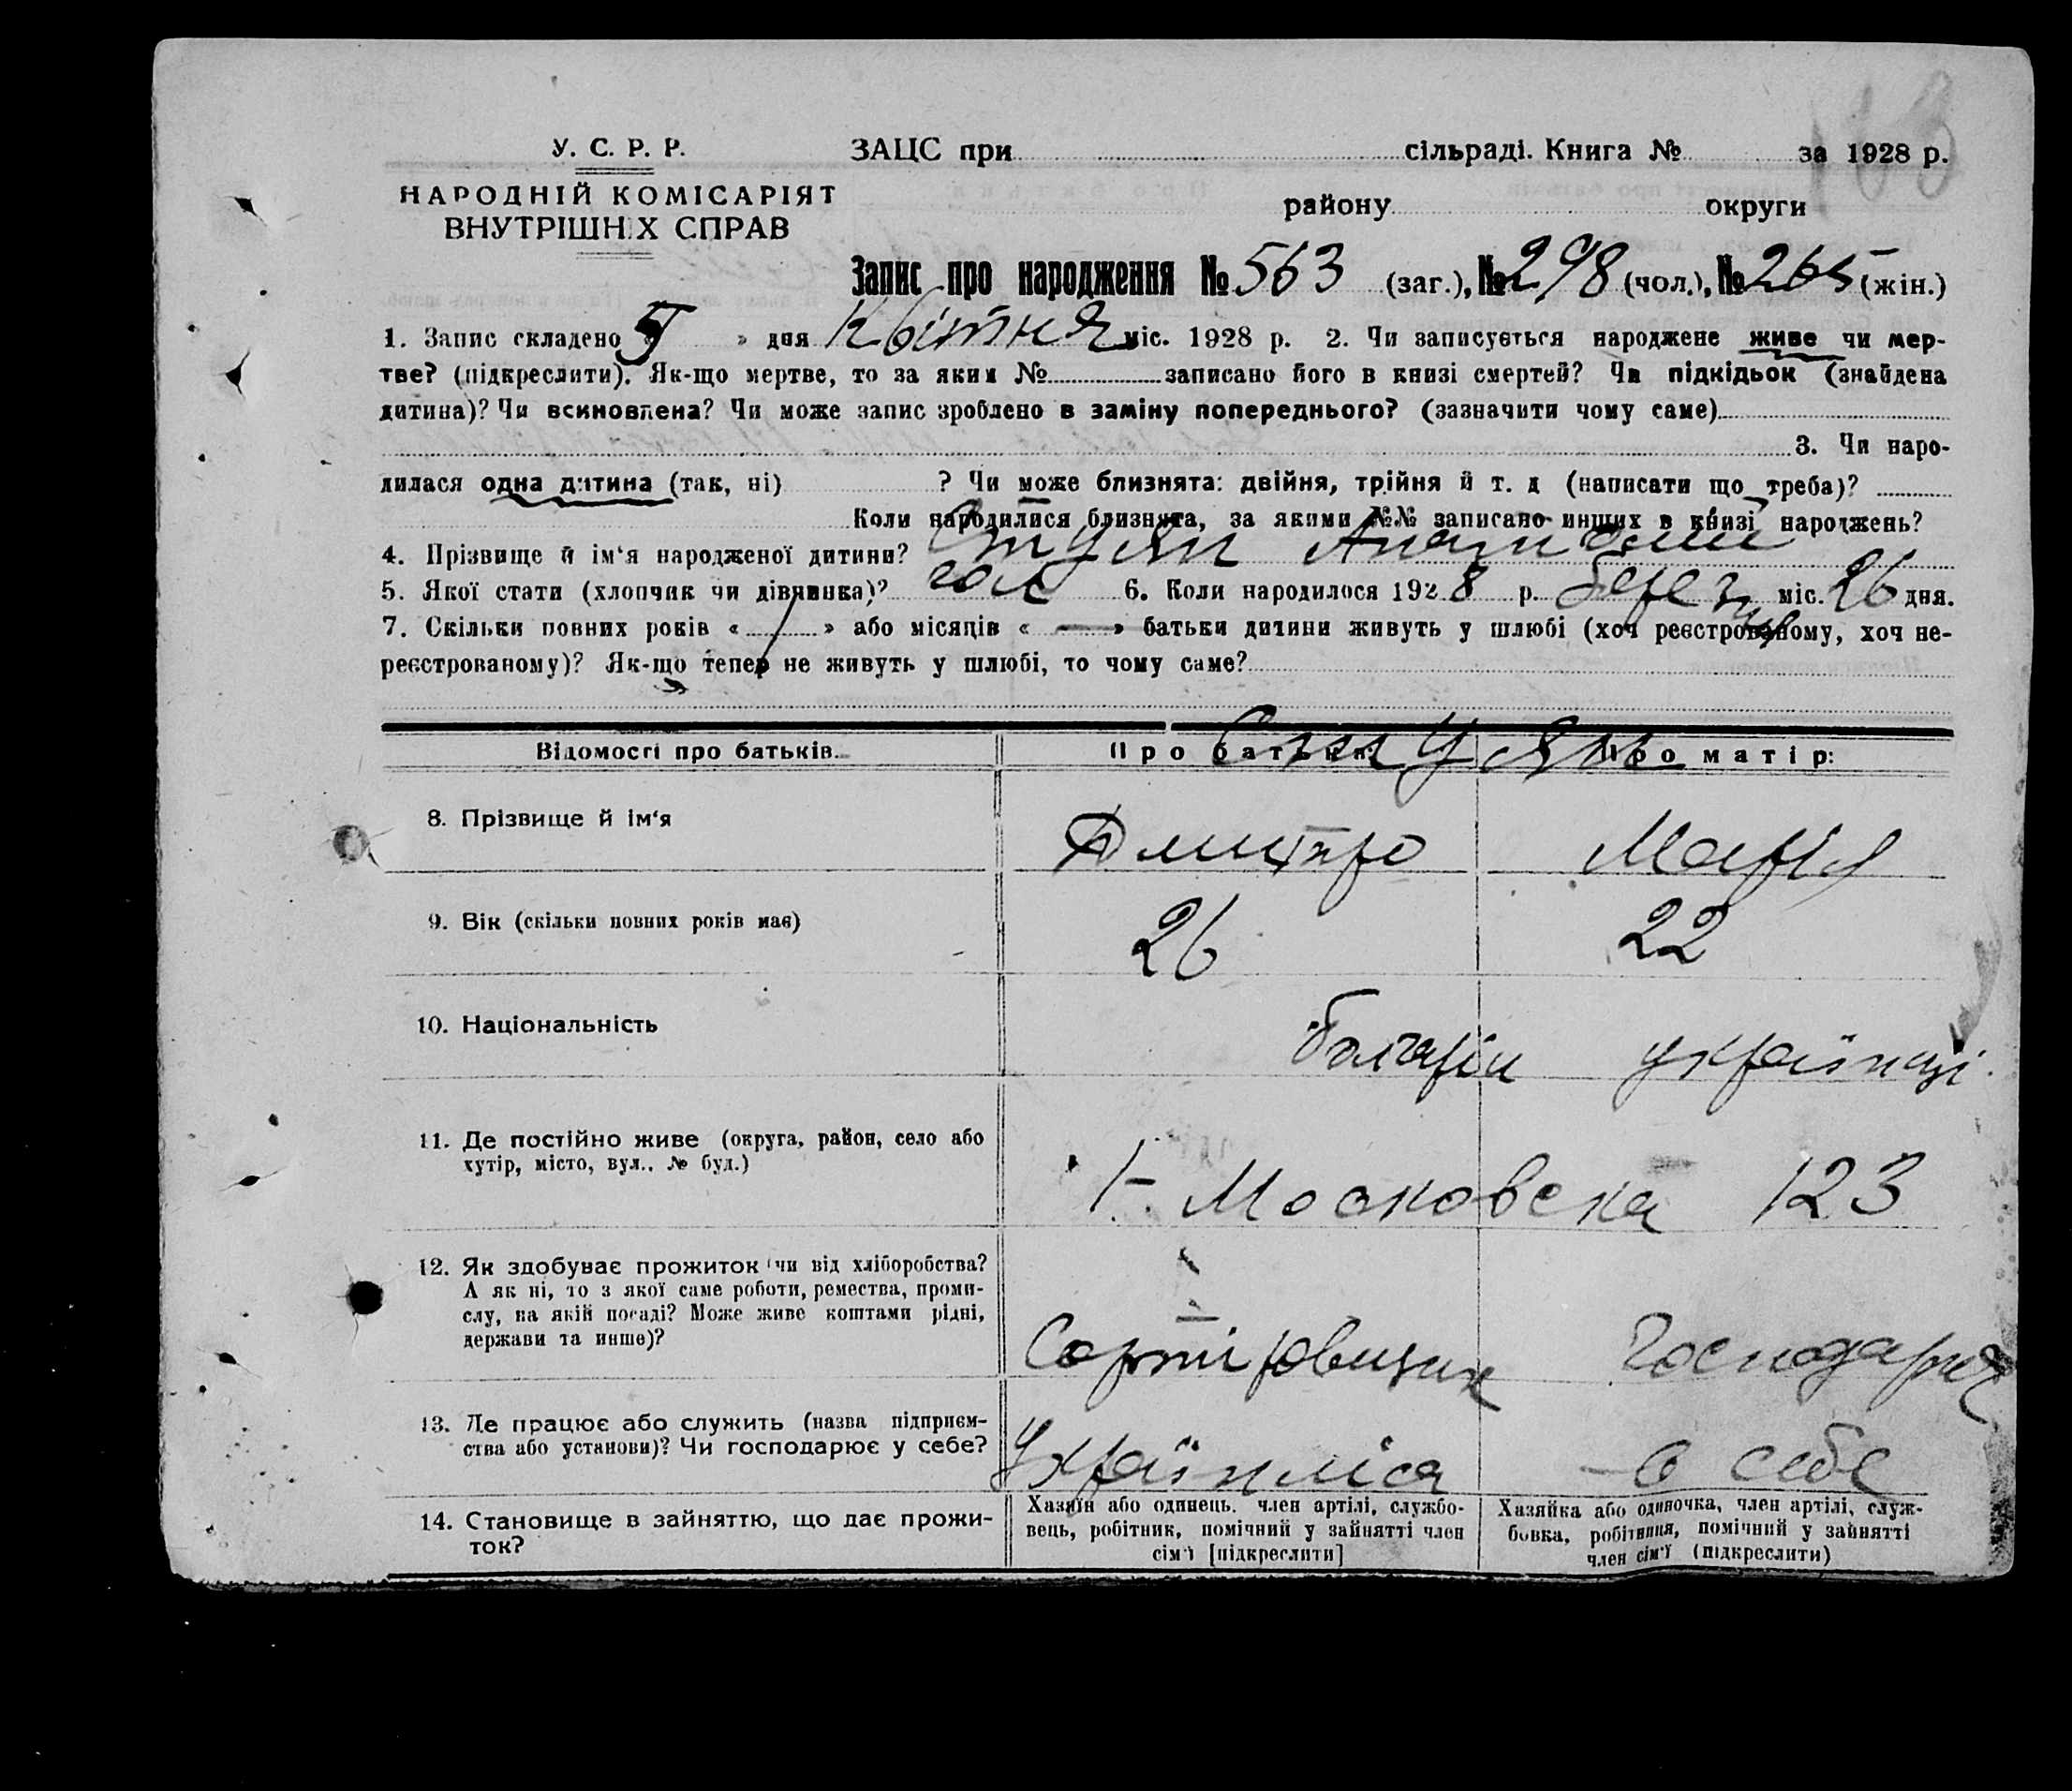 У. С. Р. Р.
НАРОДНІЙ КОМІСАРІЯТ
ВНУТРІШНІХ СПРАВ
ЗАЦС при сільраді. Книга № за 1928 р.
району округи
Запис про народження № 563 (заг.), № 298 (чол.), № 265 (жін.)
1. Запис складено « 5 » дня Квітня міс. 1928 р. 2. Чи записується народжене живе чи мер-
тве? (підкреслити). Як-що мертве, то за яким № записано його в книзі смертей? Чи підкідьок (знайдена
дитина)? Чи всиновлена? Чи може запис зроблено в заміну попереднього? (зазначити чому саме)
3. Чи наро-
дилася одна дитина (так, ні) ? Чи може близнята: двійня, трійня й т. д (написати що треба)?
Коли народилися близнята, за якими №№ записано инших в книзі народжень?
4. Прізвище й ім‘я народженої дитини? Стуян
5. Якої стати (хлопчик чи дівчинка)? чол 6. Коли народилося 1928 р. березня міс. 26 дня.
7. Скільки повних років « 1 » або місяців « — » батьки дитини живуть у шлюбі (хоч реєстрованому, хоч не-
реєстрованому)? Як-що тепер не живуть у шлюбі, то чому саме?
Відомості про батьків. Про батька: Про матір:
Стуян
8. Прізвище й ім‘я Дмитро Марія
9. Вік (скільки повних років має) 26 22
10. Національність болгарін українці
11. Де постійно живе (округа, район, село або
хутір, місто, вул., № буд.)
Московска 123
12. Як здобуває прожиток (чи від хліборобства?
А як ні, то з якої саме роботи, ремества, проми-
слу, на якій посаді? Може живе коштами рідні,
держави та инше)?
Сортіровщик Господарка
13. Де працює або служить (назва підприєм-
ства або установи)? Чи господарює у себе?
Українліса в себе
14. Становище в зайняттю, що дає прожи-
ток?
Хазяїн або одинець, член артілі, службо-
вець, робітник, помічний у зайнятті член
сім‘ї [підкреслити]
Хазяйка або одиночка, член артілі, служ-
бовка, робітниця, помічний у зайнятті
член сім‘ї (підкреслити)